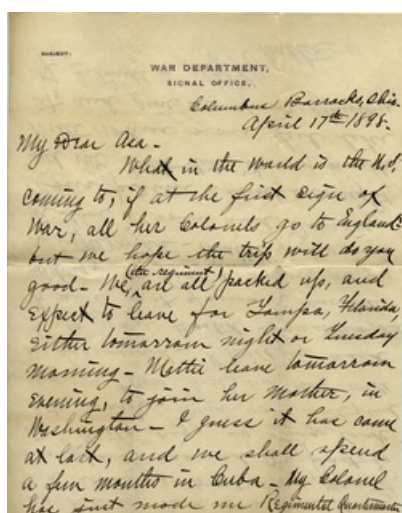 SUBJECT:
WAR DEPARTMENT,
SIGNAL OFFICE,
Columbus Barracks, Ohio.
April 17th 1898.
My Dear Asa -
What in the world is the U.S.
coming to, if at the first sign of
War, all her Colonels go to England-
but we hope the trip will do you
good - We, (the regiment) are all packed up, and
expect to leave for Tampa, Florida,
either tomorrow night or Tuesday
morning - Mattie leave tomorrow
evening, to join her Mother, in
Washington - I guess it has come
at last, and we shall spend
a few months in Cuba - My Colonel
has just made me Regimental Quartermaster